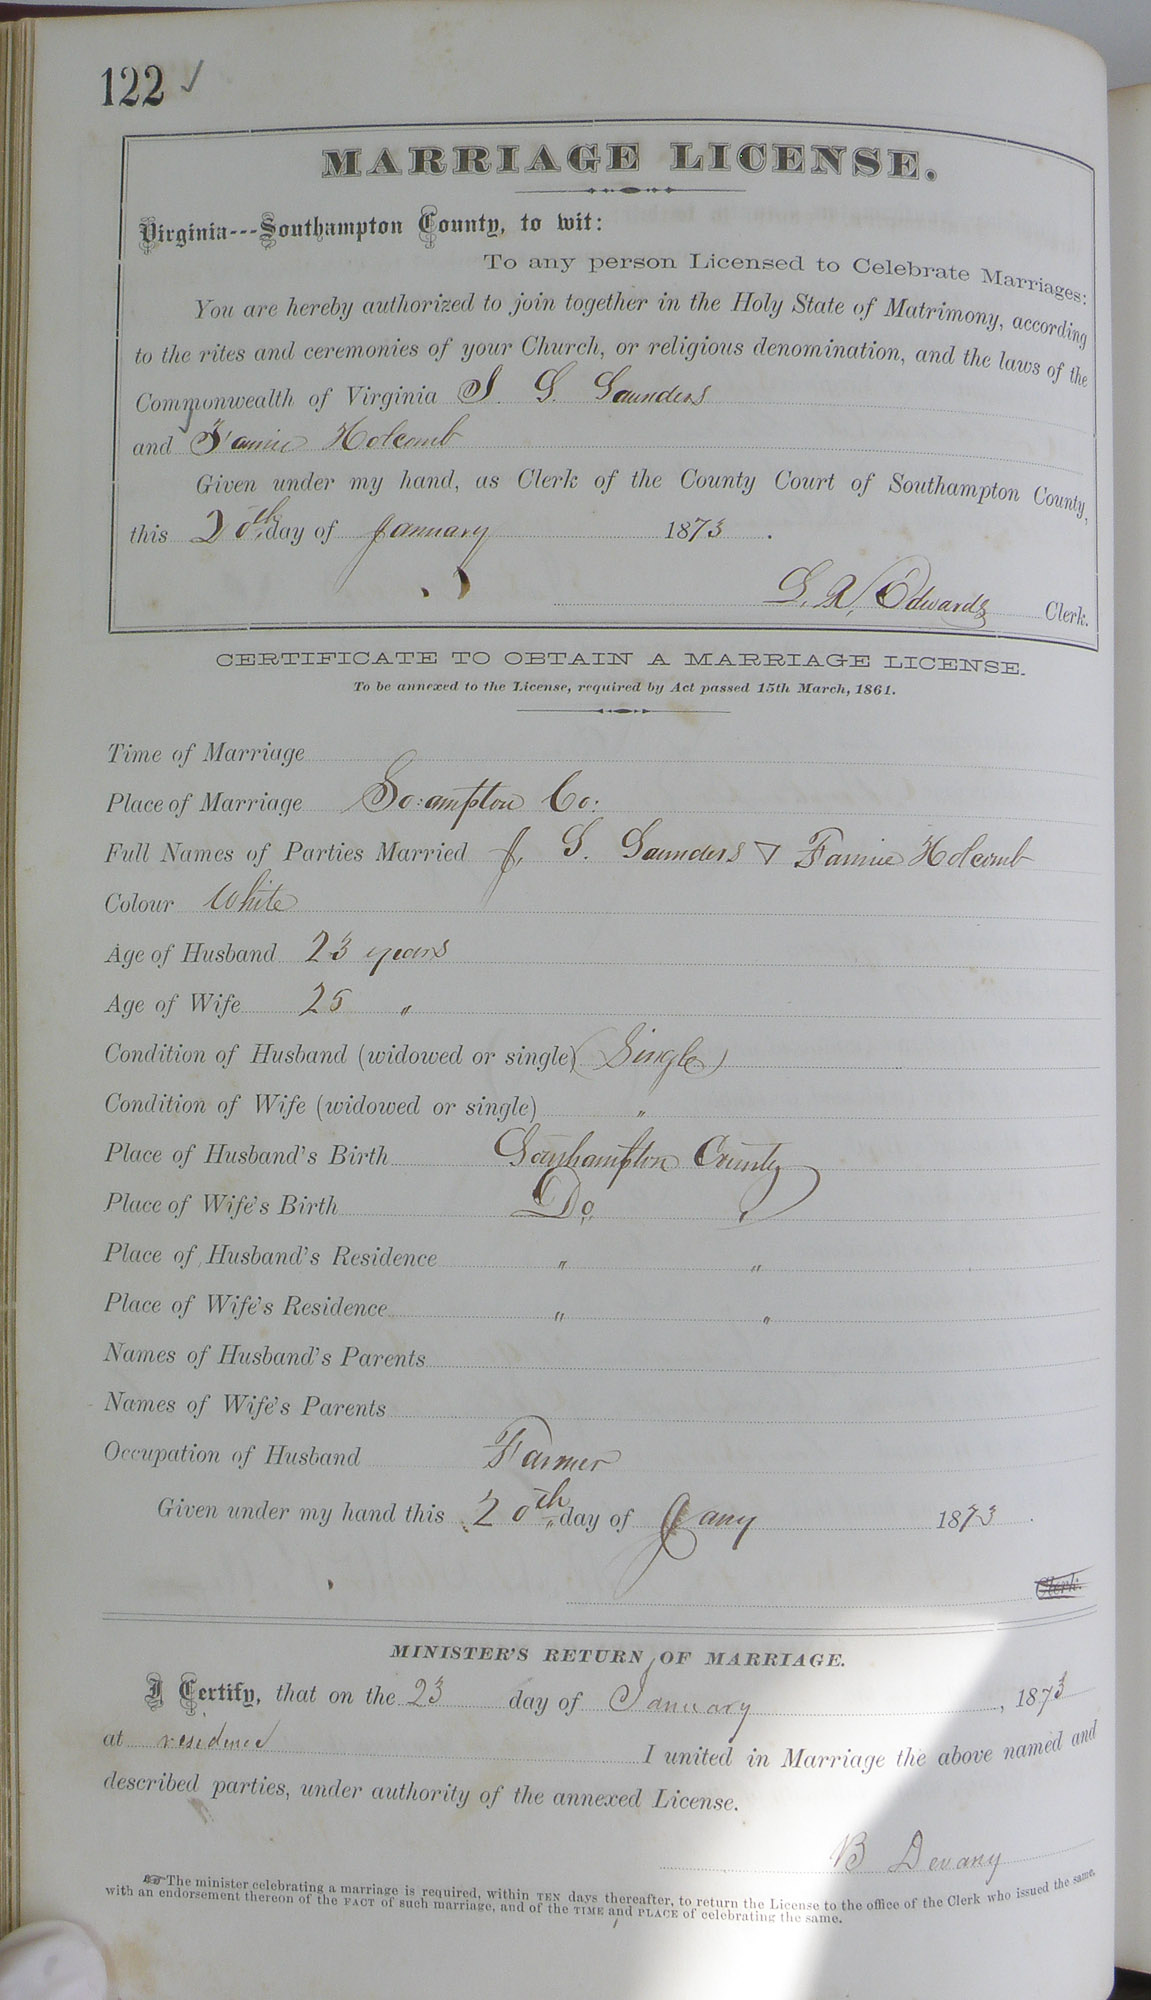 122 ✓
MARRIAGE LICENSE.
Virginia---Southampton County, to wit:
To any person Licensed to Celebrate Marriages:
You are hereby authorized to join together in the Holy State of Matrimony, according
to the rites and ceremonies of your Church, or religious denomination, and the laws of the
Commonwealth of Virginia J. S. Saunders
and Fannie Holcomb
Given under my hand, as Clerk of the County Court of Southampton County,
this 20th day of January 1873.
L. R. Edwards Clerk.
CERTIFICATE TO OBTAIN A MARRIAGE LICENSE.
To be annexed to the License, required by Act passed 15th March, 1861.
Time of Marriage
Place of Marriage So:ampton Co:
Full Names of Parties Married J. S. Saunders & Fannie Holcomb
Colour White
Age of Husband 23 years
Age of Wife 25 "
Condition of Husband (widowed or single) Single
Condition of Wife (widowed or single) "
Place of Husband's Birth Southampton County
Place of Wife's Birth Do "
Place of Husband's Residence " "
Place of Wife's Residence " "
Names of Husband's Parents
Names of Wife's Parents
Occupation of Husband Farmer
Given under my hand this 20th day of Jany 1873.
Clerk.
MINISTER'S RETURN OF MARRIAGE.
I Certify, that on the 23 day of January, 1873
at residence I united in Marriage the above named and
described parties, under authority of the annexed License.
B Devany
☞The minister celebrating a marriage is required, within TEN days thereafter, to return the License to the office of the Clerk who issued the same,
with an endorsement thereon of the FACT of such marriage, and of the TIME and PLACE of celebrating the same.